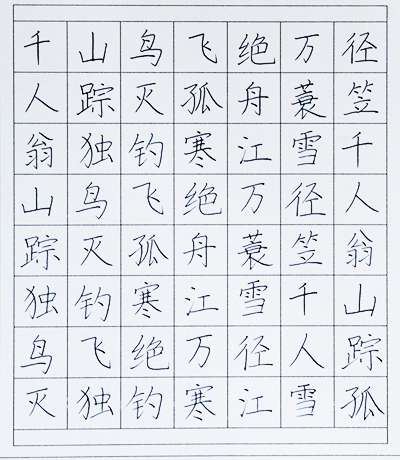 千山鸟飞绝万径
人踪灭孤舟蓑笠
翁独钓寒江雪千
山鸟飞绝万径人
踪灭孤舟蓑笠翁
独钓寒江雪千山
鸟飞绝万径人踪
灭独钓寒江雪孤